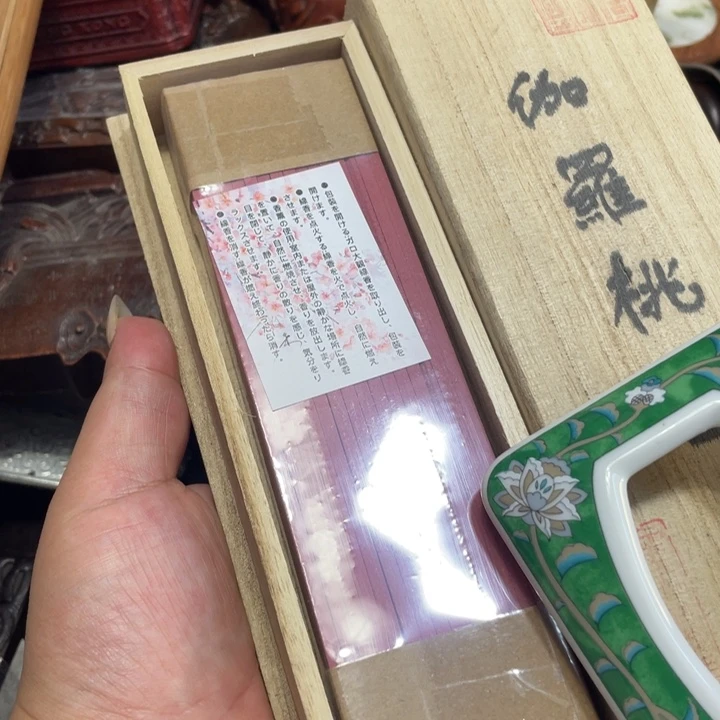 伽羅桃
●包装を開けるガロ大観線香を取り出し、包装を
開けます。
●線香を点火する線香を火で点火し、自然に燃え
させます。
●香薫の使用室内または屋外の静かな場所に線香
を置いて、自然に燃焼させ、香りを放出します。
目を閉じて、静かに香りの散りを感じ、気分をリ
ラックスさせます。
●線香を消す線香が燃え終わったら消す。